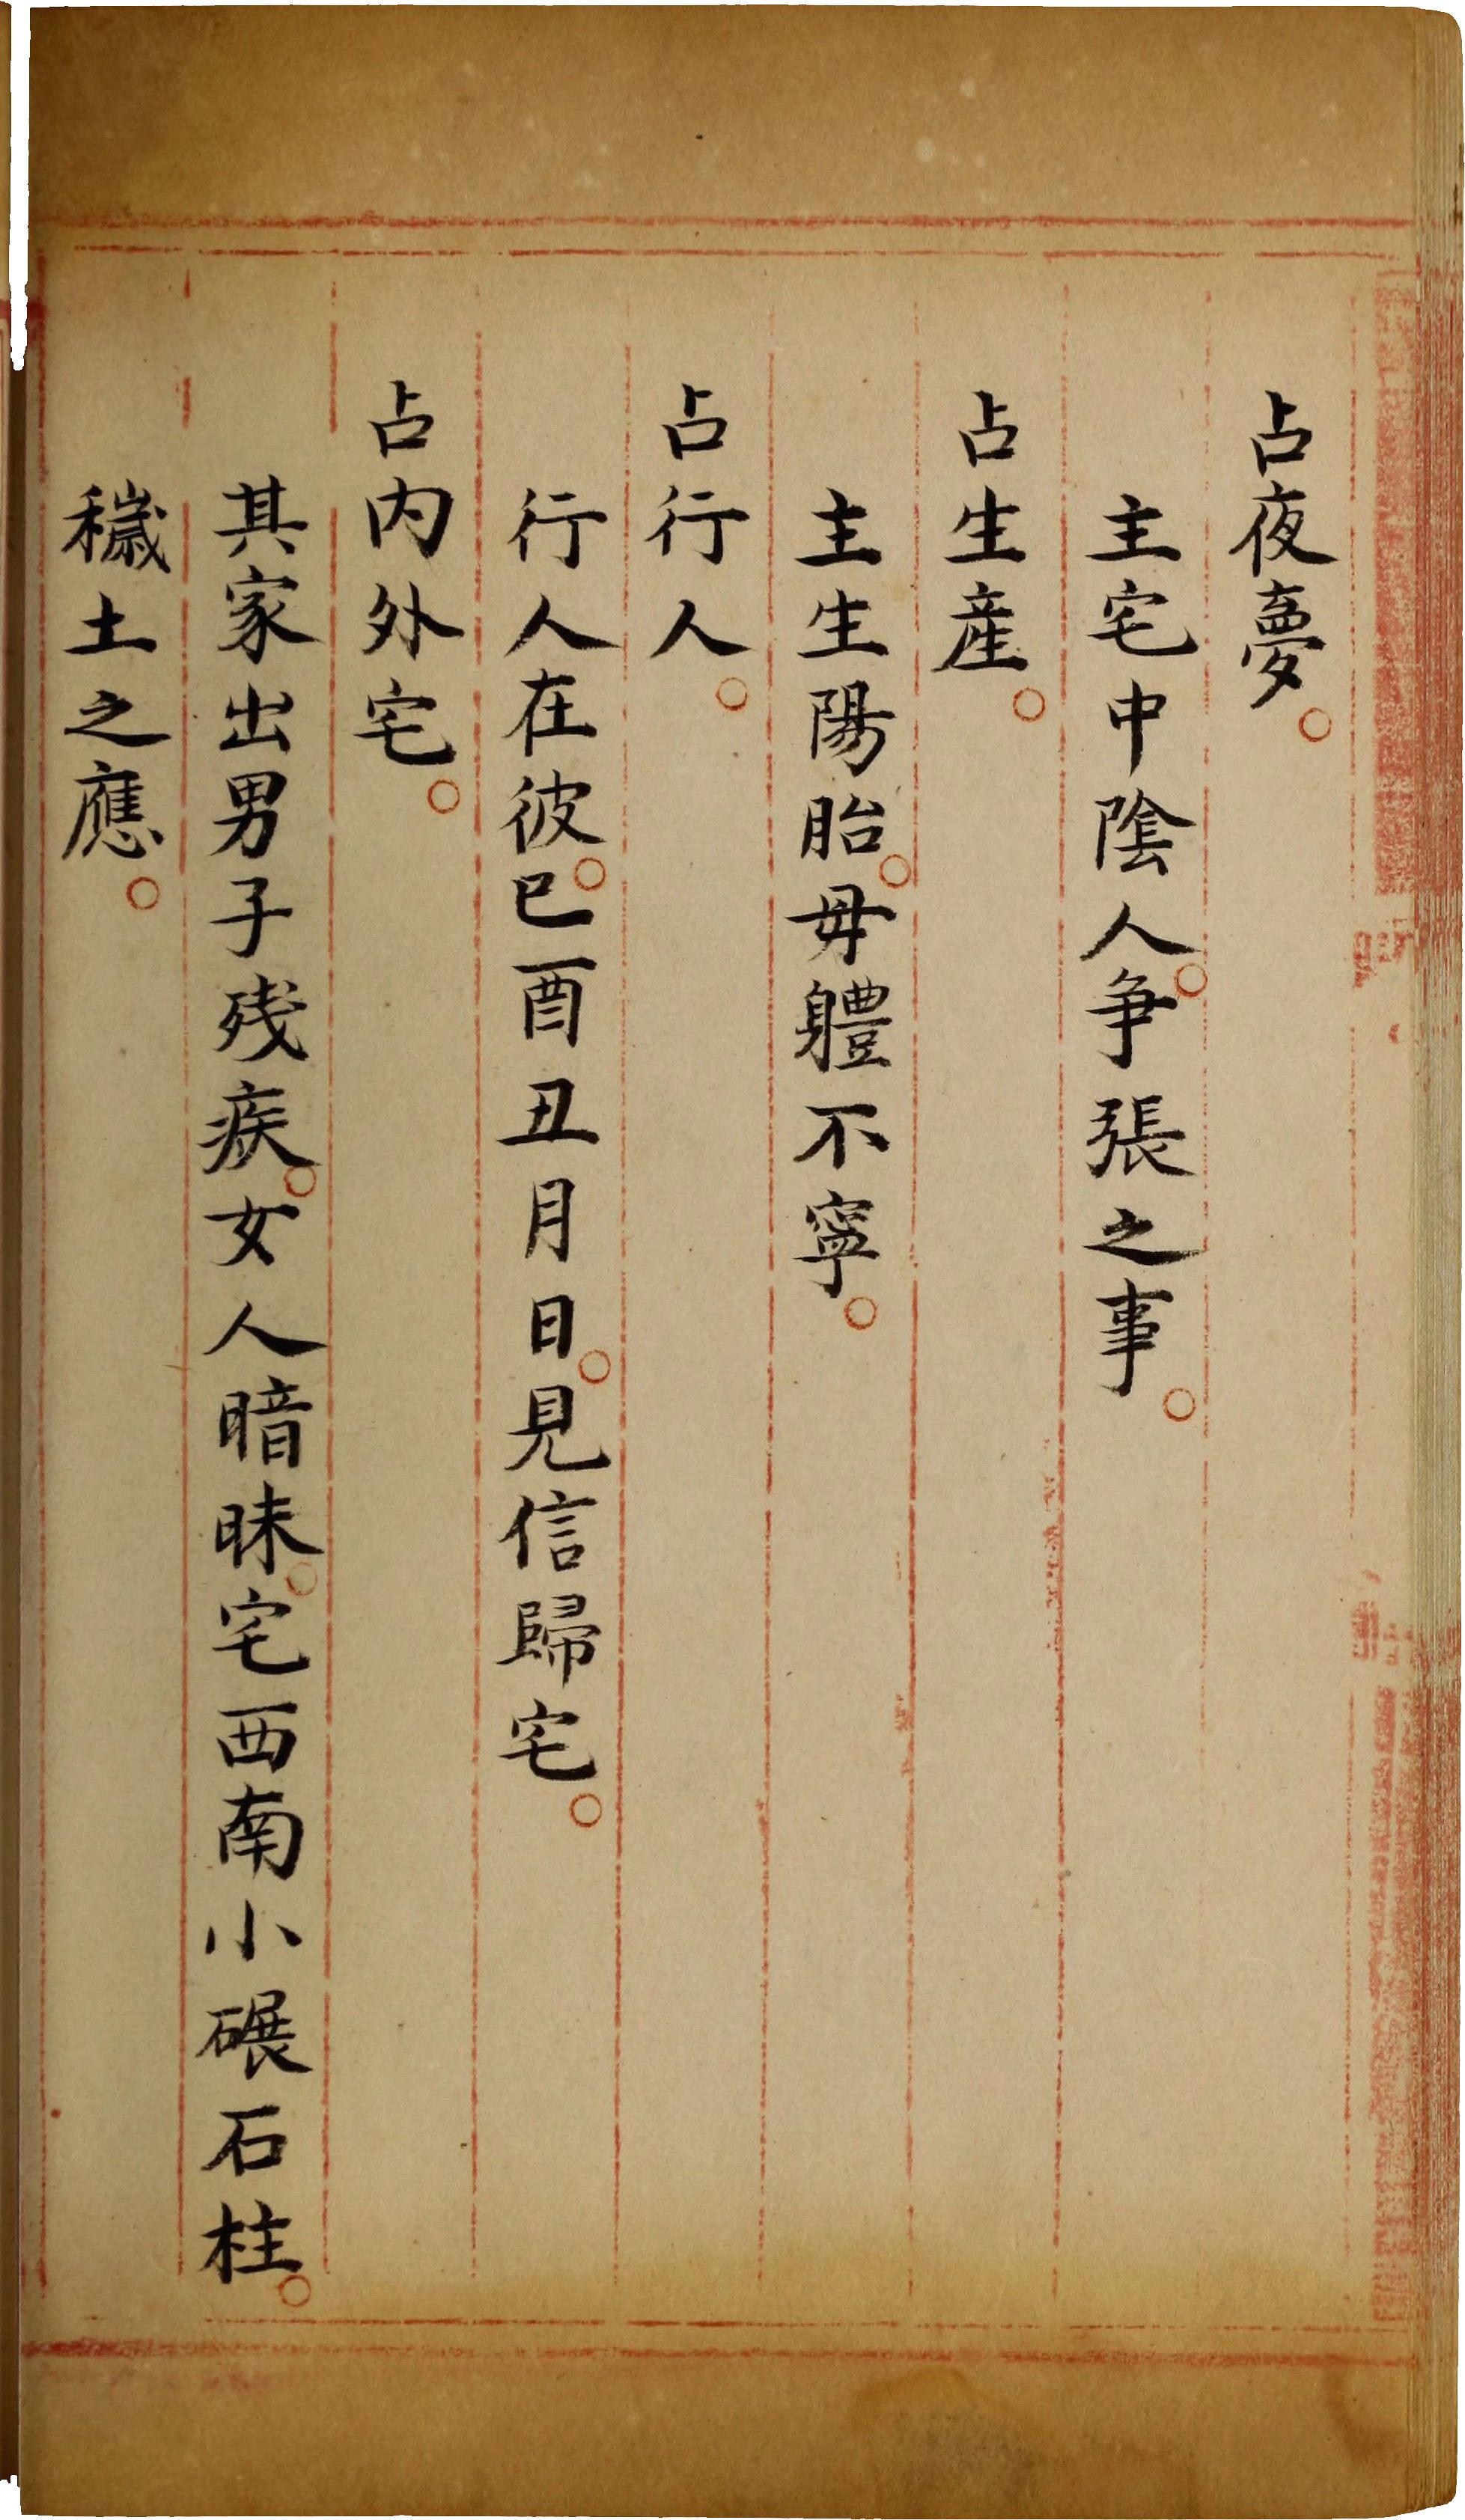 占夜夢。
主宅中陰人。争張之事。
占生産。
主生陽胎。毋軆不寧。
占行人。
行人在彼。巳酉丑月日。見信歸宅。
占内外宅。
其家出男子残疾。女人暗昧。宅西南小碾石柱。
穢土之應。